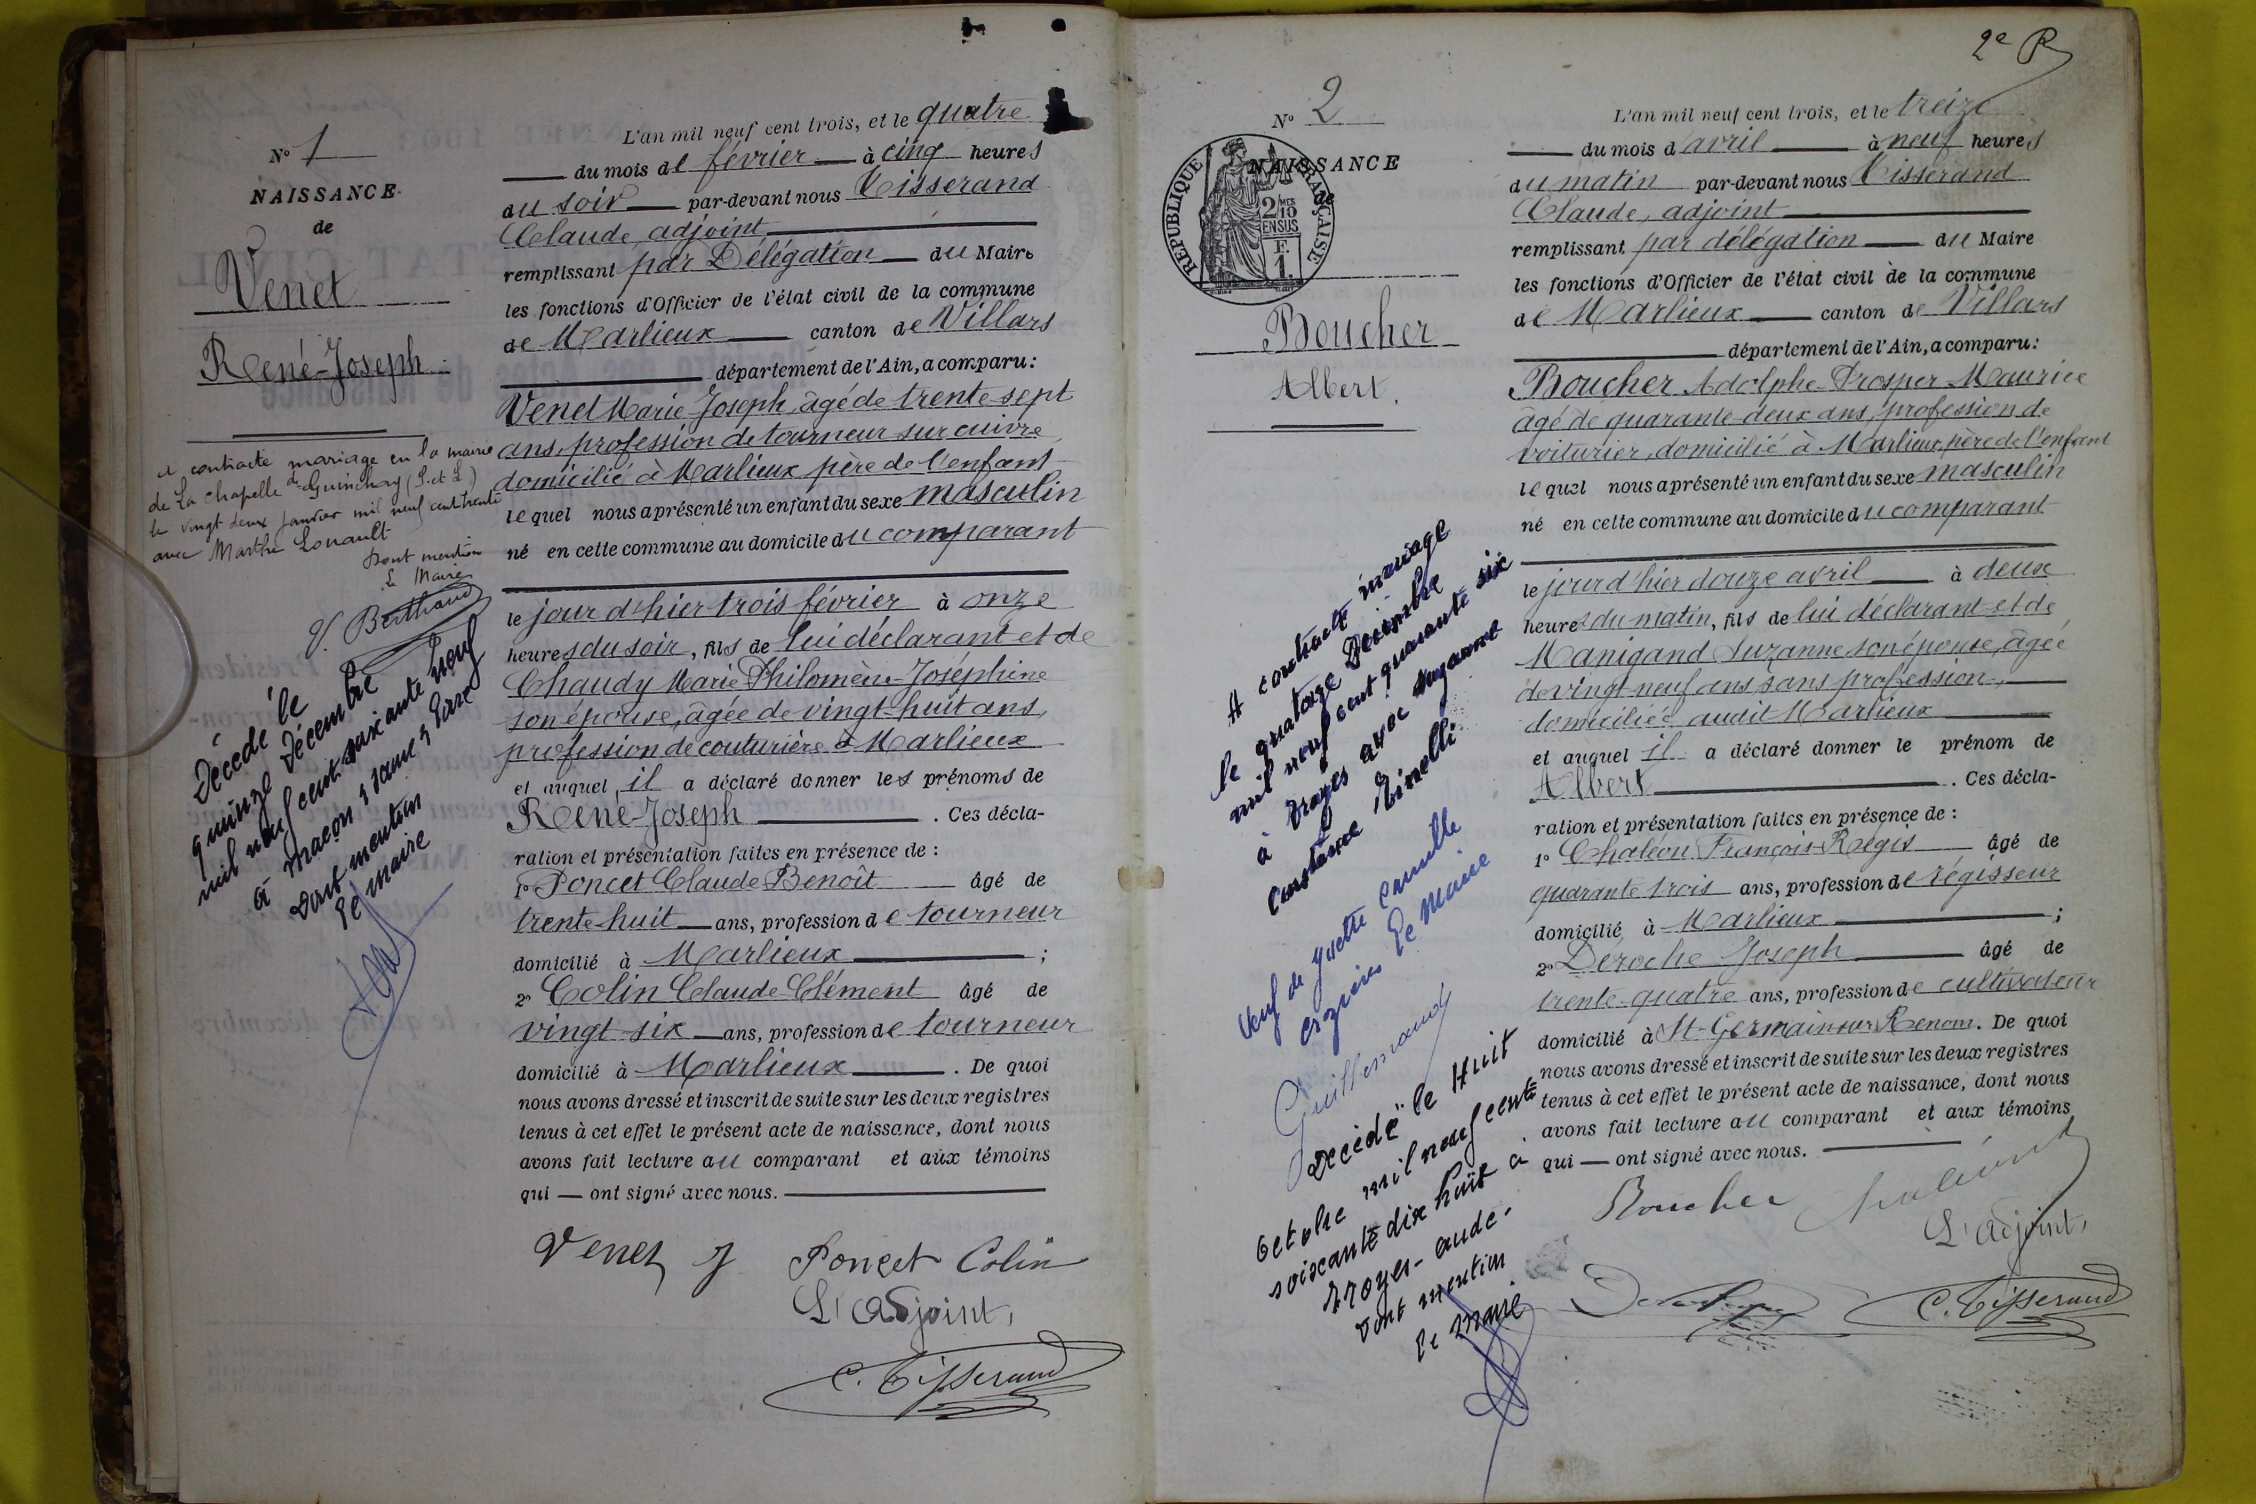 N° 1
NAISSANCE
de
Venet
René-Joseph
a contracté mariage en la mairie
de La Chapelle de Guinchay (S. et L.)
le vingt deux janvier mil neuf cent trente
avec Marthe
Dont mention
Le Maire
Berthaud
Décédé le
quinze Décembre
mil neuf cent soixante neuf
à Macon
Dont mention
Le Maire
L'an mil neuf cent trois, et le quatre
du mois de février à cinq heures
du soir par-devant nous Tisserand
Claude, adjoint
remplissant par Délégation du Maire
les fonctions d'Officier de l'état civil de la commune
de Marlieux canton de Villars
département de l'Ain, a comparu:
Venet Marie Joseph, âgé de trente-sept
ans, profession de tourneur sur cuivre
domicilié à Marlieux père de l'enfant
lequel nous a présenté un enfant du sexe masculin
né en cette commune au domicile du comparant
le jour d'hier trois février à onze
heures du soir, fils de lui déclarant et de
Chaudy Marie Philomène-Joséphine
son épouse, âgée de vingt-huit ans,
profession de couturière à Marlieux
et auquel il a déclaré donner les prénoms de
René-Joseph . Ces décla-
ration et présentation faites en présence de :
1° Poncet Claude Benoît âgé de
trente-huit ans, profession de tourneur
domicilié à Marlieux ;
2° Colin Claude-Clément âgé de
vingt-six ans, profession de tourneur
domicilié à Marlieux . De quoi
nous avons dressé et inscrit de suite sur les deux registres
tenus à cet effet le présent acte de naissance, dont nous
avons fait lecture au comparant et aux témoins
qui — ont signé avec nous.
Venet J Poncet Colin
L'adjoint,
C. Tisserand
2e
N° 2
NAISSANCE
de
REPUBLIQUE FRANÇAISE
2/10 EN SUS
F. 1.
Boucher
Albert.
A contracté mariage
le quatorze Décembre
mil neuf cent quarante six
à Troyes avec Suzanne
Constance Tinelli
Veuf de Ginette Camille
Crozières Le Maire
Guillemaud
Décédé le Huit
octobre mil neuf cent
soixante dix huit à
Troyes - Aude.
Dont mention
Le Maire
L'an mil neuf cent trois, et le treize
du mois d'avril à neuf heures
du matin par-devant nous Tisserand
Claude, adjoint
remplissant par délégation du Maire
les fonctions d'Officier de l'état civil de la commune
de Marlieux canton de Villars
département de l'Ain, a comparu:
Boucher Adolphe-Prosper Maurice
âgé de quarante-deux ans, profession de
voiturier, domicilié à Marlieux, père de l'enfant
lequel nous a présenté un enfant du sexe masculin
né en cette commune au domicile du comparant
le jour d'hier douze avril à deux
heures du matin, fils de lui déclarant et de
Manigand Suzanne son épouse, âgée
de vingt-neuf ans sans profession,
domiciliée audit Marlieux
et auquel il a déclaré donner le prénom de
Albert . Ces décla-
ration et présentation faites en présence de :
1° Chaléon François-Régis âgé de
quarante trois ans, profession de régisseur
domicilié à Marlieux ;
2° Déroche Joseph âgé de
trente-quatre ans, profession de cultivateur
domicilié à St-Germain-sur-Renom. De quoi
nous avons dressé et inscrit de suite sur les deux registres
tenus à cet effet le présent acte de naissance, dont nous
avons fait lecture au comparant et aux témoins
qui — ont signé avec nous.
Boucher
L'adjoint,
C. Tisserand